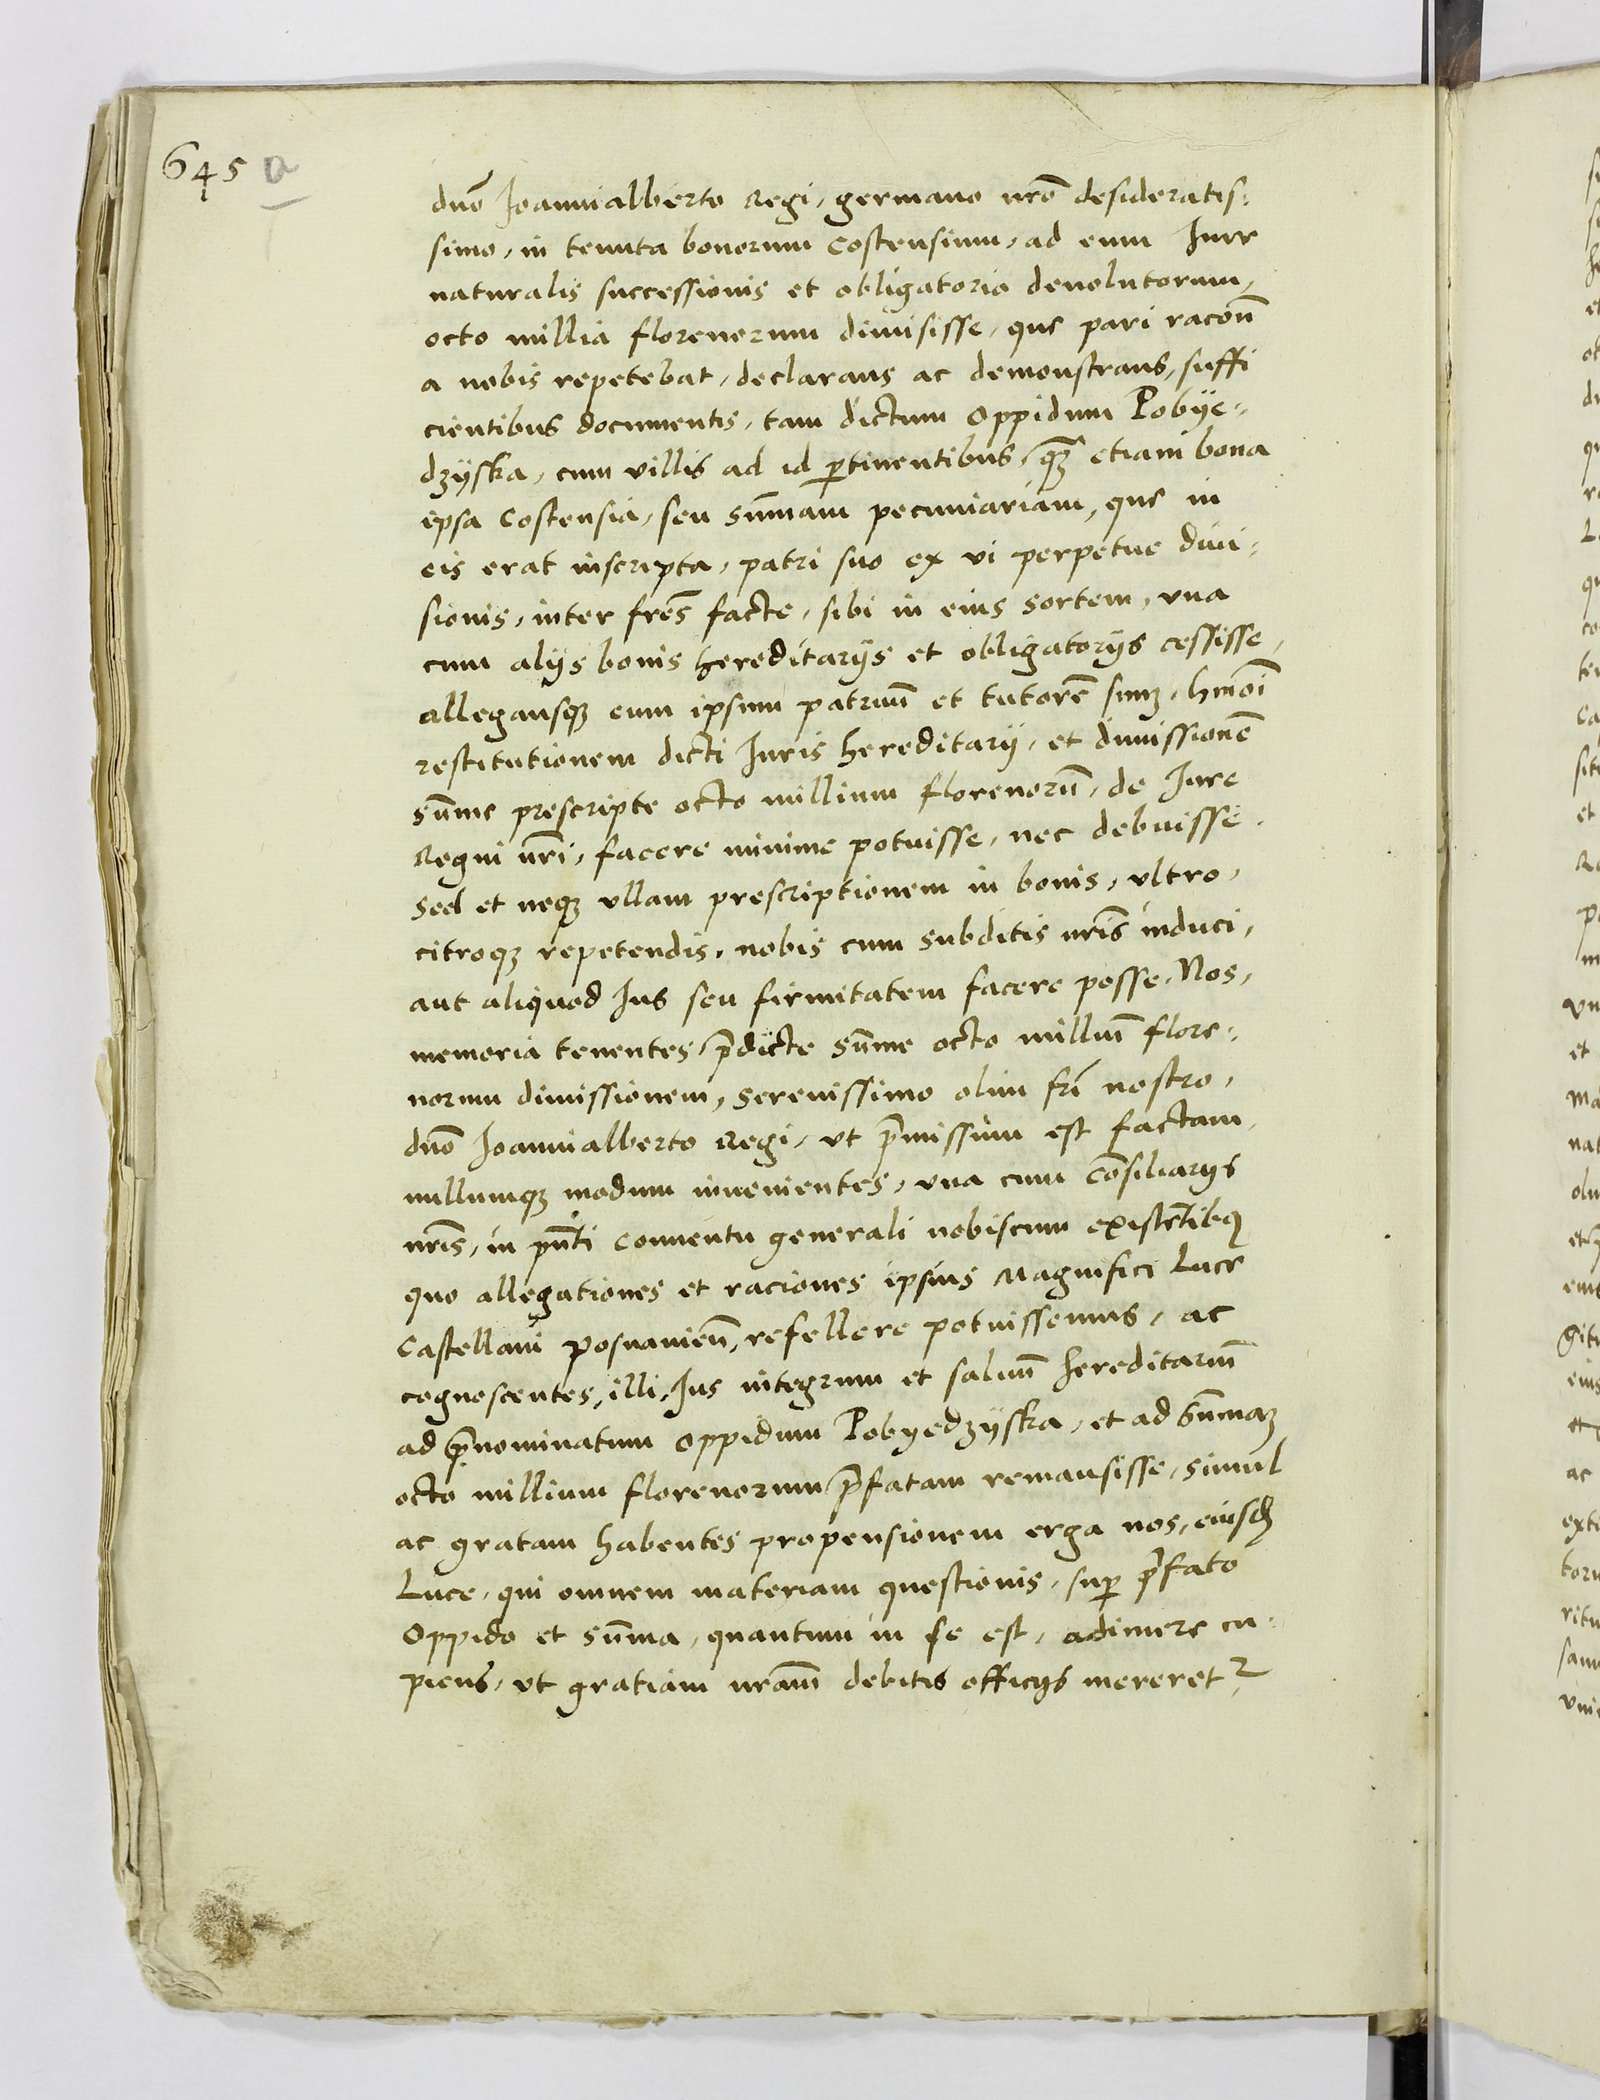 645 a
dnō Joannialberto Regi, germano nrō desideratis:
simo, in tenuta bonorum Costensium, ad eum Jure
naturalis successionis et obligatorio deuolutorum,
octo millia florenorum dimisisse, que pari racōn
a nobis repetebat, declarans ac demonstrans, suffi
cientibus documentis, tam dictum Oppidum Pobÿe-
dzÿska, cum villis ad id ꝑtinentibus, qꝫ etiam bona
ipsa Costensia, seu sūmam pecuniariam, que in
eis erat inscripta, patri suo ex vi perpetue diui-
sionis, inter frēs facte, sibi in eius sortem, vna
cum alijs bonis hereditarijs et obligatorijs cessisse,
allegansqꝫ eum ipsum patruū et tutorē suuꝫ, hmōi
restitutionem dicti Juris hereditarij, et dimissionē
sūme prescripte octo millium florenorū, de Jure
Regni nrī, facere minime potuisse, nec debuisse.
Sed et neqꝫ vllam prescriptionem in bonis, vltro,
citroqꝫ repetendis, nobis cum subditis nrīs induci,
aut aliquod Jus seu firmitatem facere posse. Nos,
memoria tenentes, p̄dicte sūme octo milliū flore-
norum dimissionem, Serenissimo olim frī nostro,
dnō Joannialberto Regi, vt p̄missum est factam,
nullumqꝫ modum inuenientes, vna cum Cōsiliarijs
nrīs, in pn̄ti conuentu generali nobiscum existētibꝫ
quo allegationes et raciones ipsius Magnifici Luce
Castellani Posnanien̄, refellere potuissemus, ac
cognoscentes, illi, Jus integrum et saluū hereditariū
ad p̄nominatum Oppidum Pobyedzÿska, et ad Sūmaꝫ
octo millium florenorum p̄fatam remansisse, simul
ac gratam habentes propensionem erga nos, eiusd̄
Luce, qui omnem materiam questionis, suꝑ p̄fato
Oppido et Sūma, quantum in se est, adimere cu-
piens, vt gratiam nrām debitis officijs mereret᷑